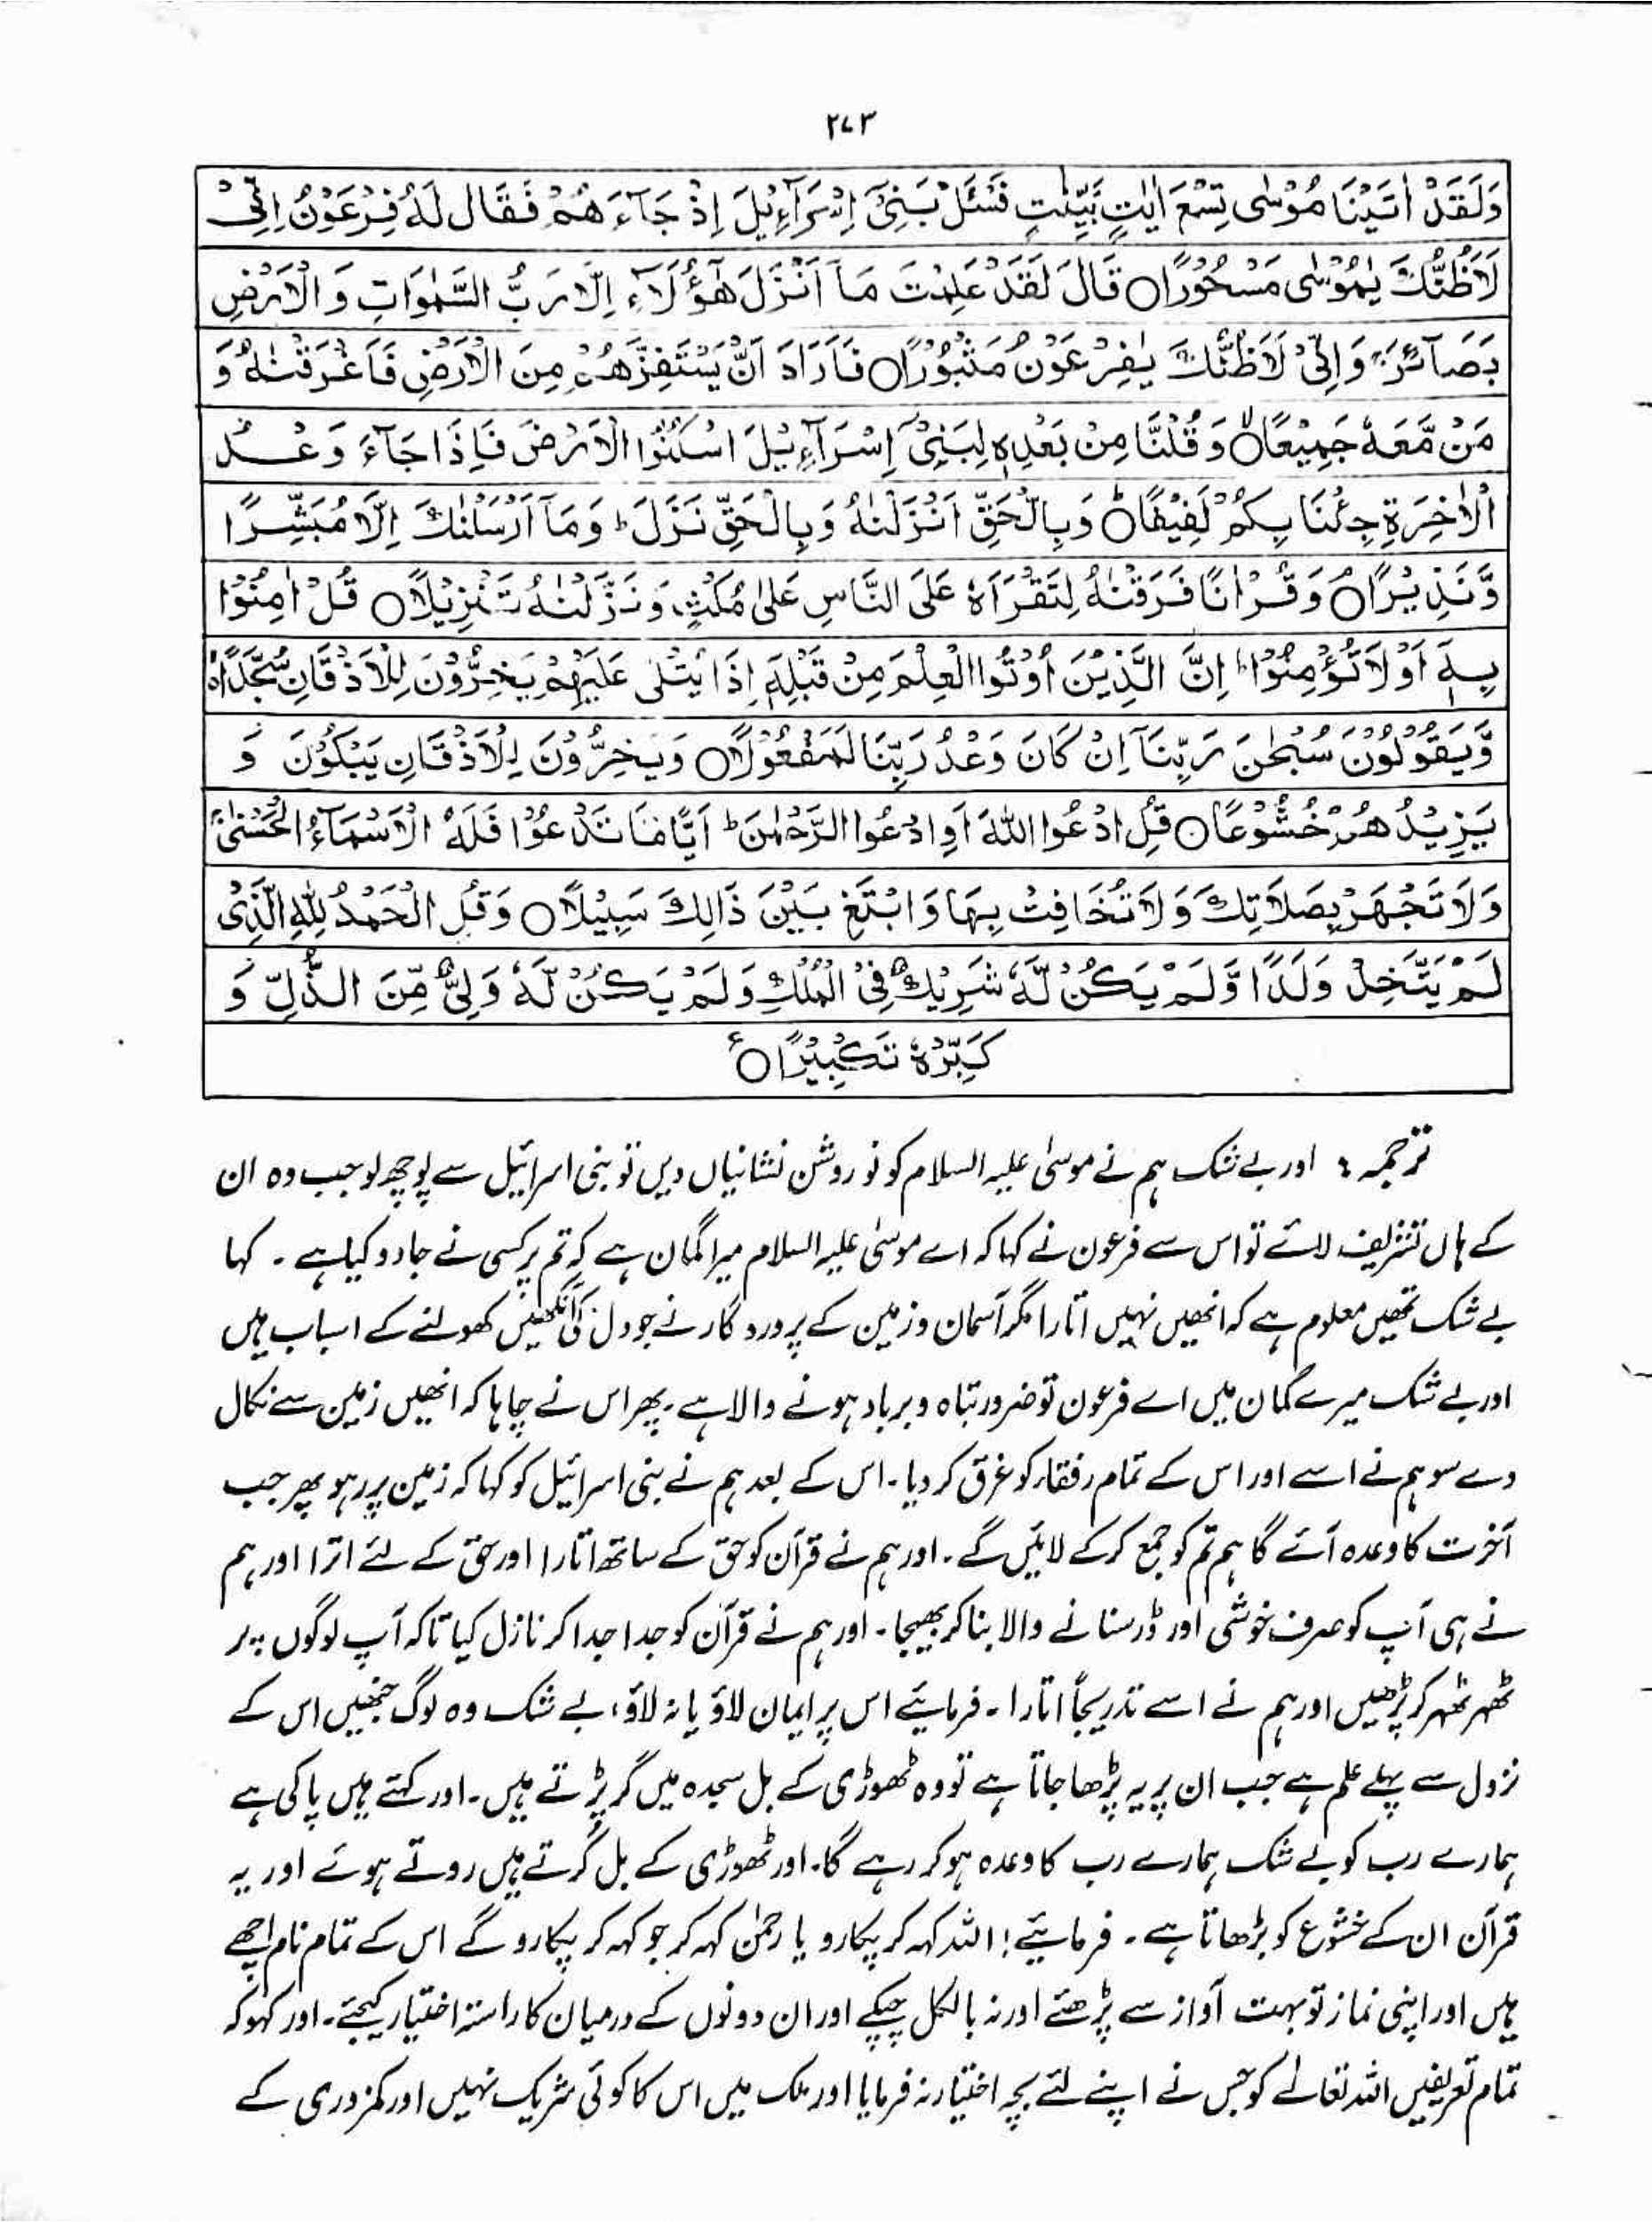 ۲۷۳
وَلَقَدْ اٰتَيْنَا مُوْسٰى تِسْعَ اٰيٰتٍۭ بَيِّنٰتٍ فَسْئَلْ بَنِيْٓ اِسْرَآءِيْلَ اِذْ جَآءَهُمْ فَقَالَ لَهُ فِرْعَوْنُ اِنِّيْ
لَاَظُنُّكَ يٰمُوْسٰى مَسْحُوْرًا○ قَالَ لَقَدْ عَلِمْتَ مَآ اَنْزَلَ هٰٓؤُلَآءِ اِلَّا رَبُّ السَّمٰوَاتِ وَالْاَرْضِ
بَصَآئِرَ ۚ وَاِنِّيْ لَاَظُنُّكَ يٰفِرْعَوْنُ مَثْبُوْرًا○ فَاَرَادَ اَنْ يَّسْتَفِزَّهُمْ مِنَ الْاَرْضِ فَاَغْرَقْنٰهُ وَ
مَنْ مَّعَهٗ جَمِيْعًا○ۙ وَقُلْنَا مِنْۢ بَعْدِهٖ لِبَنِيْٓ اِسْرَآءِيْلَ اسْكُنُوا الْاَرْضَ فَاِذَا جَآءَ وَعْدُ
الْاٰخِرَةِ جِئْنَا بِكُمْ لَفِيْفًا○ؕ وَبِالْحَقِّ اَنْزَلْنٰهُ وَبِالْحَقِّ نَزَلَ ؕ وَمَآ اَرْسَلْنٰكَ اِلَّا مُبَشِّرًا
وَّنَذِيْرًا○ۘ وَقُرْاٰنًا فَرَقْنٰهُ لِتَقْرَاَهٗ عَلَى النَّاسِ عَلٰى مُكْثٍ وَنَزَّلْنٰهُ تَنْزِيْلًا○ قُلْ اٰمِنُوْا
بِهٖٓ اَوْ لَا تُؤْمِنُوْا ؕ اِنَّ الَّذِيْنَ اُوْتُوا الْعِلْمَ مِنْ قَبْلِهٖٓ اِذَا يُتْلٰى عَلَيْهِمْ يَخِرُّوْنَ لِلْاَذْقَانِ سُجَّدًا○ۙ
وَّيَقُوْلُوْنَ سُبْحٰنَ رَبِّنَآ اِنْ كَانَ وَعْدُ رَبِّنَا لَمَفْعُوْلًا○ وَيَخِرُّوْنَ لِلْاَذْقَانِ يَبْكُوْنَ وَ
يَزِيْدُهُمْ خُشُوْعًا○ قُلِ ادْعُوا اللّٰهَ اَوِ ادْعُوا الرَّحْمٰنَ ؕ اَيًّا مَّا تَدْعُوْا فَلَهُ الْاَسْمَآءُ الْحُسْنٰى ۚ
وَلَا تَجْهَرْ بِصَلَاتِكَ وَلَا تُخَافِتْ بِهَا وَابْتَغِ بَيْنَ ذَالِكَ سَبِيْلًا○ وَقُلِ الْحَمْدُ لِلّٰهِ الَّذِيْ
لَمْ يَتَّخِذْ وَلَدًا وَّلَمْ يَكُنْ لَّهٗ شَرِيْكٌ فِي الْمُلْكِ وَلَمْ يَكُنْ لَّهٗ وَلِيٌّ مِّنَ الذُّلِّ وَ
كَبِّرْهُ تَكْبِيْرًا○ع
ترجمہ: اور بے شک ہم نے موسیٰ علیہ السلام کو نو روشن نشانیاں دیں تو بنی اسرائیل سے پوچھ لو جب وہ ان
کے ہاں تشریف لائے تو اس سے فرعون نے کہا کہ اے موسیٰ علیہ السلام میرا گمان ہے کہ تم پر کسی نے جادو کیا ہے ۔ کہا
بے شک تمھیں معلوم ہے کہ انھیں نہیں اتارا مگر آسمان و زمین کے پروردگار نے جو دل کی آنکھیں کھولنے کے اسباب ہیں
اور بے شک میرے گمان میں اے فرعون تو ضرور تباہ و برباد ہونے والا ہے ۔ پھر اس نے چاہا کہ انھیں زمین سے نکال
دے سو ہم نے اسے اور اس کے تمام رفقاء کو غرق کر دیا ۔ اس کے بعد ہم نے بنی اسرائیل کو کہا کہ زمین پر رہو پھر جب
آخرت کا وعدہ آئے گا ہم تم کو جمع کر کے لائیں گے ۔ اور ہم نے قرآن کو حق کے ساتھ اتارا اور حق کے لئے اترا اور ہم
نے ہی آپ کو صرف خوشی اور ڈر سنانے والا بنا کر بھیجا ۔ اور ہم نے قرآن کو جدا جدا کر نازل کیا تاکہ آپ لوگوں پر
ٹھہر ٹھہر کر پڑھیں اور ہم نے اسے تدریجاً اتارا ۔ فرمایئے اس پر ایمان لاؤ یا نہ لاؤ، بے شک وہ لوگ جنھیں اس کے
نزول سے پہلے علم ہے جب ان پر یہ پڑھا جاتا ہے تو وہ ٹھوڑی کے بل سجدہ میں گر پڑتے ہیں ۔ اور کہتے ہیں پاکی ہے
ہمارے رب کو بے شک ہمارے رب کا وعدہ ہو کر رہے گا ۔ اور ٹھوڑی کے بل گرتے ہیں روتے ہوئے اور یہ
قرآن ان کے خشوع کو بڑھاتا ہے ۔ فرمایئے! اللہ کہہ کر پکارو یا رحمٰن کہہ کر جو کہہ کر پکارو گے اس کے تمام نام اچھے
ہیں اور اپنی نماز تو بہت آواز سے پڑھئے اور نہ بالکل چپکے اور ان دونوں کے درمیان کا راستہ اختیار کیجئے ۔ اور کہو کہ
تمام تعریفیں اللہ تعالےٰ کو جس نے اپنے لئے بچہ اختیار نہ فرمایا اور ملک میں اس کا کوئی شریک نہیں اور کمزوری کے